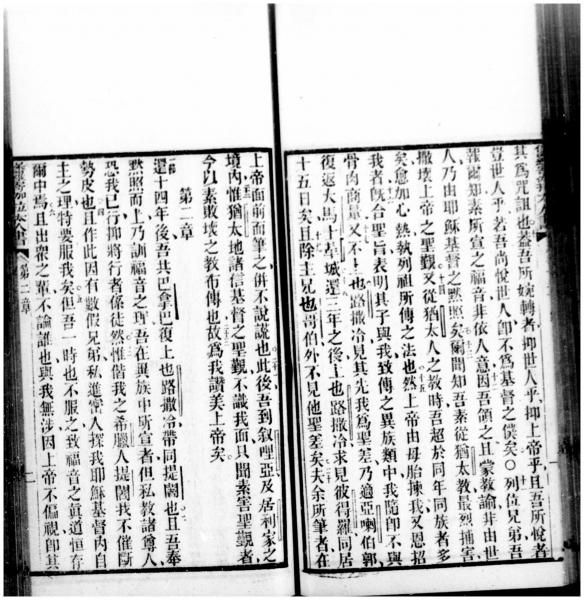 其爲咒詛也蓋吾所婉轉者抑世人乎抑上帝乎且吾所悅者
豈世人乎若吾尚悅世人卽不爲基督之僕矣○列位兄弟吾
報爾知素所宣之福音非依人意因吾領之且蒙教諭非由世
人乃由耶穌基督之黙照矣爾聞知吾素從猶太教最烈捕害
撒壞上帝之聖覲又從猶太人之教時吾超於同年同族者多
矣愈加心熱執列祖所傳之法也然上帝由母胎揀我又恩招
我者旣合聖旨表明其子與我致傳之異族類中我隨卽不與
骨肉商量又不上也路撒冷見其先我爲聖差乃適亞喇伯郭
復返大馬士革城還三年之後上也路撒冷求見彼得羅同居
十五日矣且除主兄也哥伯外不見他聖差矣夫余所筆者在
上帝面前而筆之倂不說謊也此後吾到叙哩亞及居利家之
境內惟猶太地諸信基督之聖覲不識我面只聞素害聖覲者
今以素敗壞之教布傳也故爲我讚美上帝矣
第二章
還十四年後吾共巴拿巴復上也路撒冷帶同提闥也且吾奉
黙照而上乃訓福音之理吾在異族中所宣者但私教諸尊人
恐我已行抑將行者係徒然惟偕我之希臘人提闥我不催斷
勢皮也且作此因有數假兄弟私進密人探我耶穌基督內自
主之理特要服我矣但吾一時也不服之致福音之眞道恒存
爾中焉且出衆之輩不論誰也與我無涉因上帝不偏視卽其
第二章